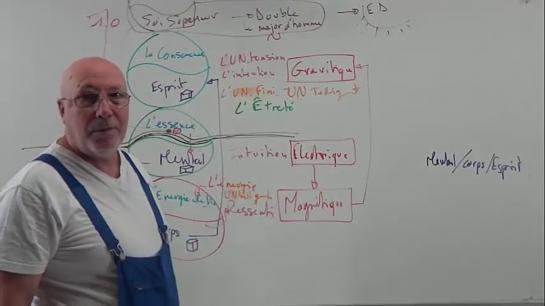 Soi Supérieur → Double → ED
majord'homme
la Conscience
Esprit
L'UN.tension
L'intention
Gravitique
L'UN.fini.
L'Êtreté
L'essence
Mental
Intuition
Électrique
L'énergie
Ressenti
Magnétique
Mental/corps/Esprit